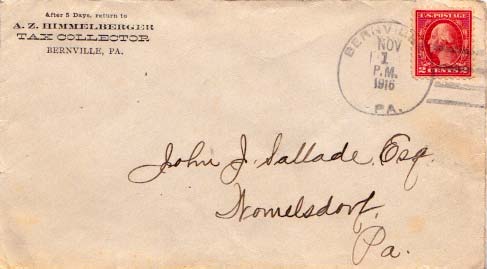 After 5 Days, return to
A. Z. HIMMELBERGER
TAX COLLECTOR
BERNVILLE, PA.
BERNVILLE
NOV
1
P.M.
1916
PA.
U.S. POSTAGE
2 CENTS 2
John J. Sallade, Esq.
Womelsdorf,
Pa.